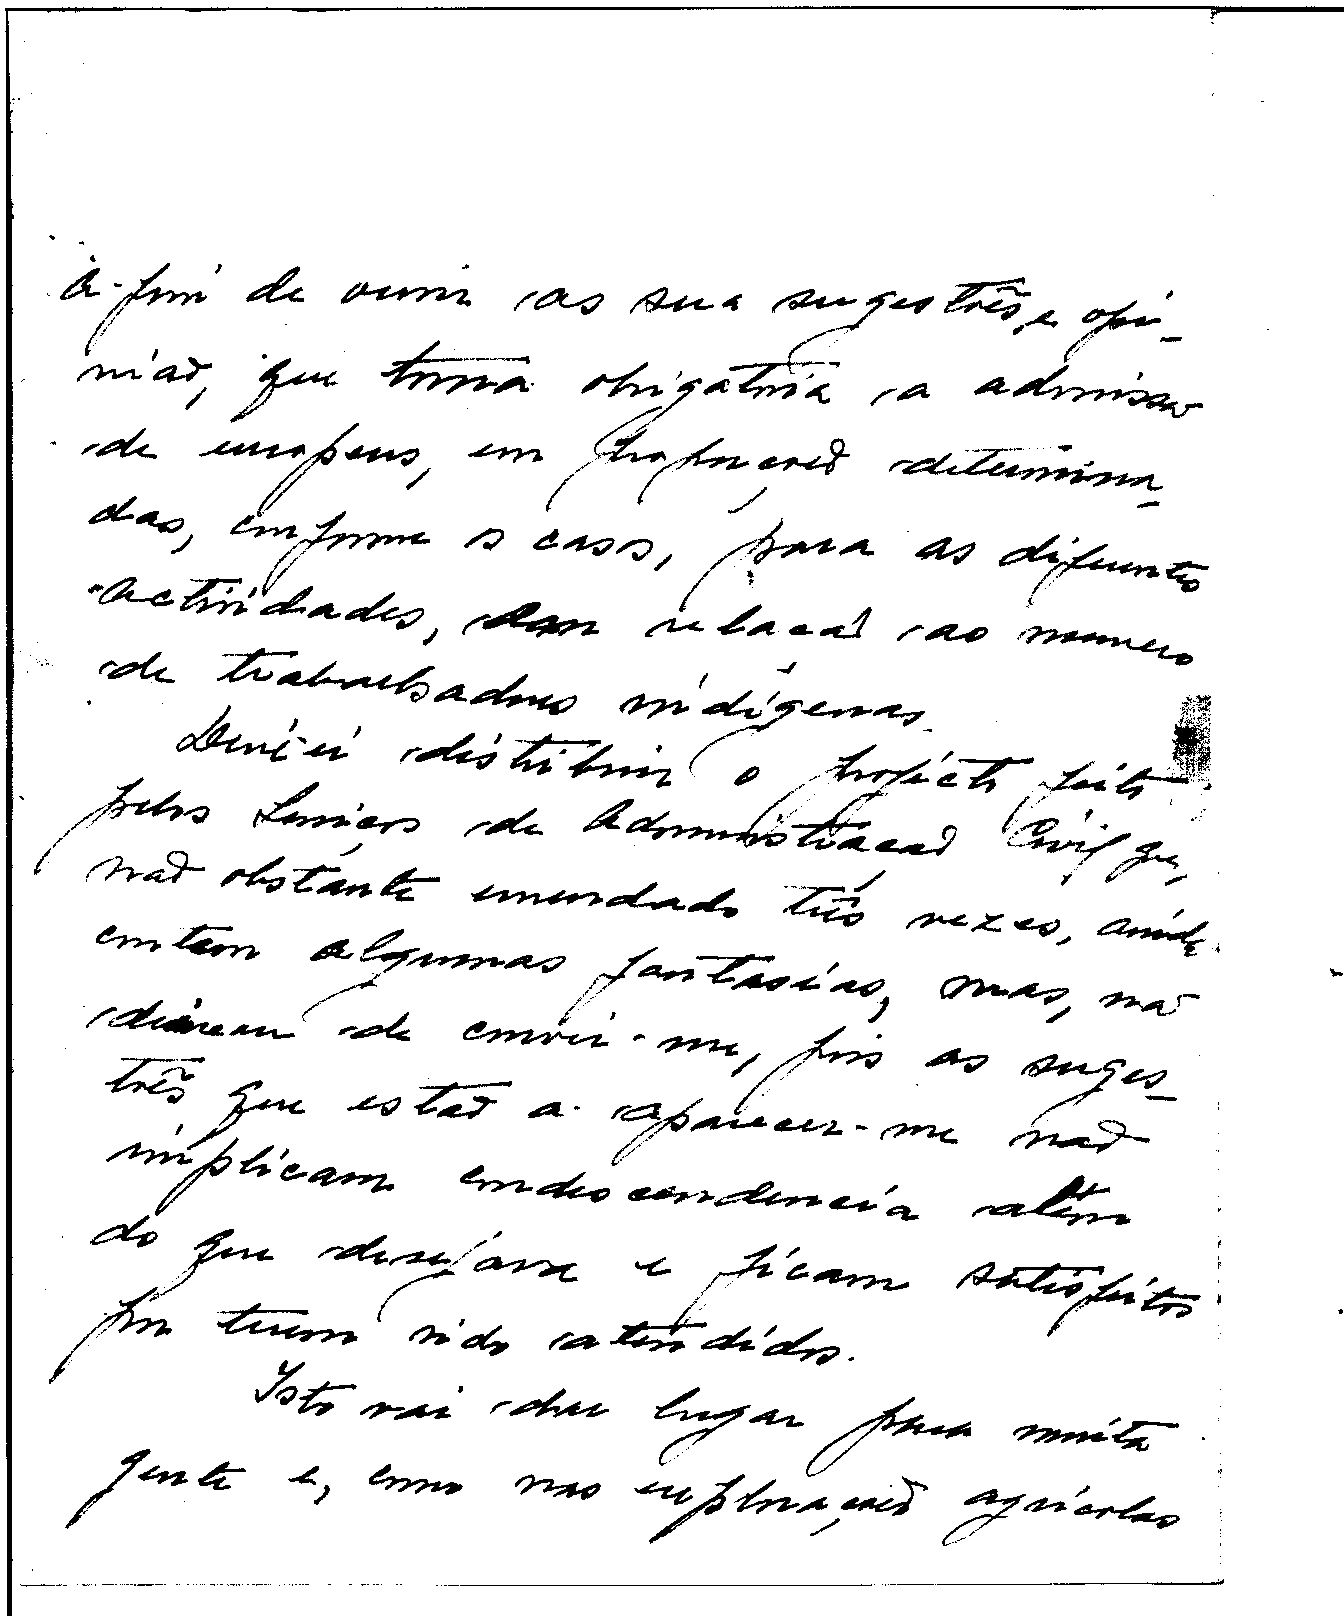 a-fim de ouvir as sua sugestões e opi-
nião, que torna obrigatória a admissão
de europeus, em proporções determina-
das, conforme os casos, para as diferentes
actividades, com relação ao numero
de trabalhadores indígenas.
Deixei distribuir o projecto feito
pelos Serviços de Administração Civil que,
não obstante emendado três vezes, ainda
contem algumas fantasias, mas, não
deixeram de convir-me, pois as suges-
tões que estão a aparecer-me não
implicam condescendencia além
do que desejava e ficam satisfeitos
por terem sido atendidos.
Isto vai dar lugar para muita
gente e, como nas explorações agricolas